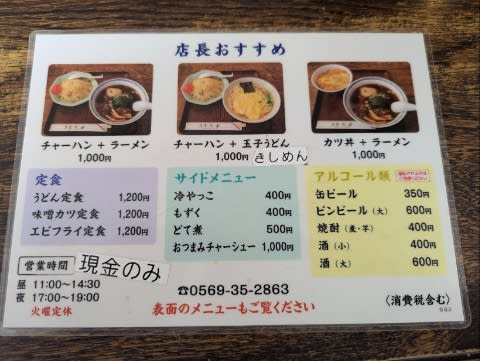 店長おすすめ
チャーハン + ラーメン
1,000円
チャーハン + 玉子うどん
1,000円 きしめん
カツ丼 + ラーメン
1,000円
定食
うどん定食 1,200円
味噌カツ定食 1,200円
エビフライ定食 1,200円
サイドメニュー
冷やっこ 400円
もずく 400円
どて煮 500円
おつまみチャーシュー 1,000円
アルコール類
缶ビール 350円
ビンビール(大) 600円
焼酎(麦・芋) 400円
酒(小) 400円
酒(大) 600円
営業時間
現金のみ
昼 11:00〜14:30
夜 17:00〜19:00
火曜定休
☎0569-35-2863
表面のメニューもご覧ください
〈消費税含む〉